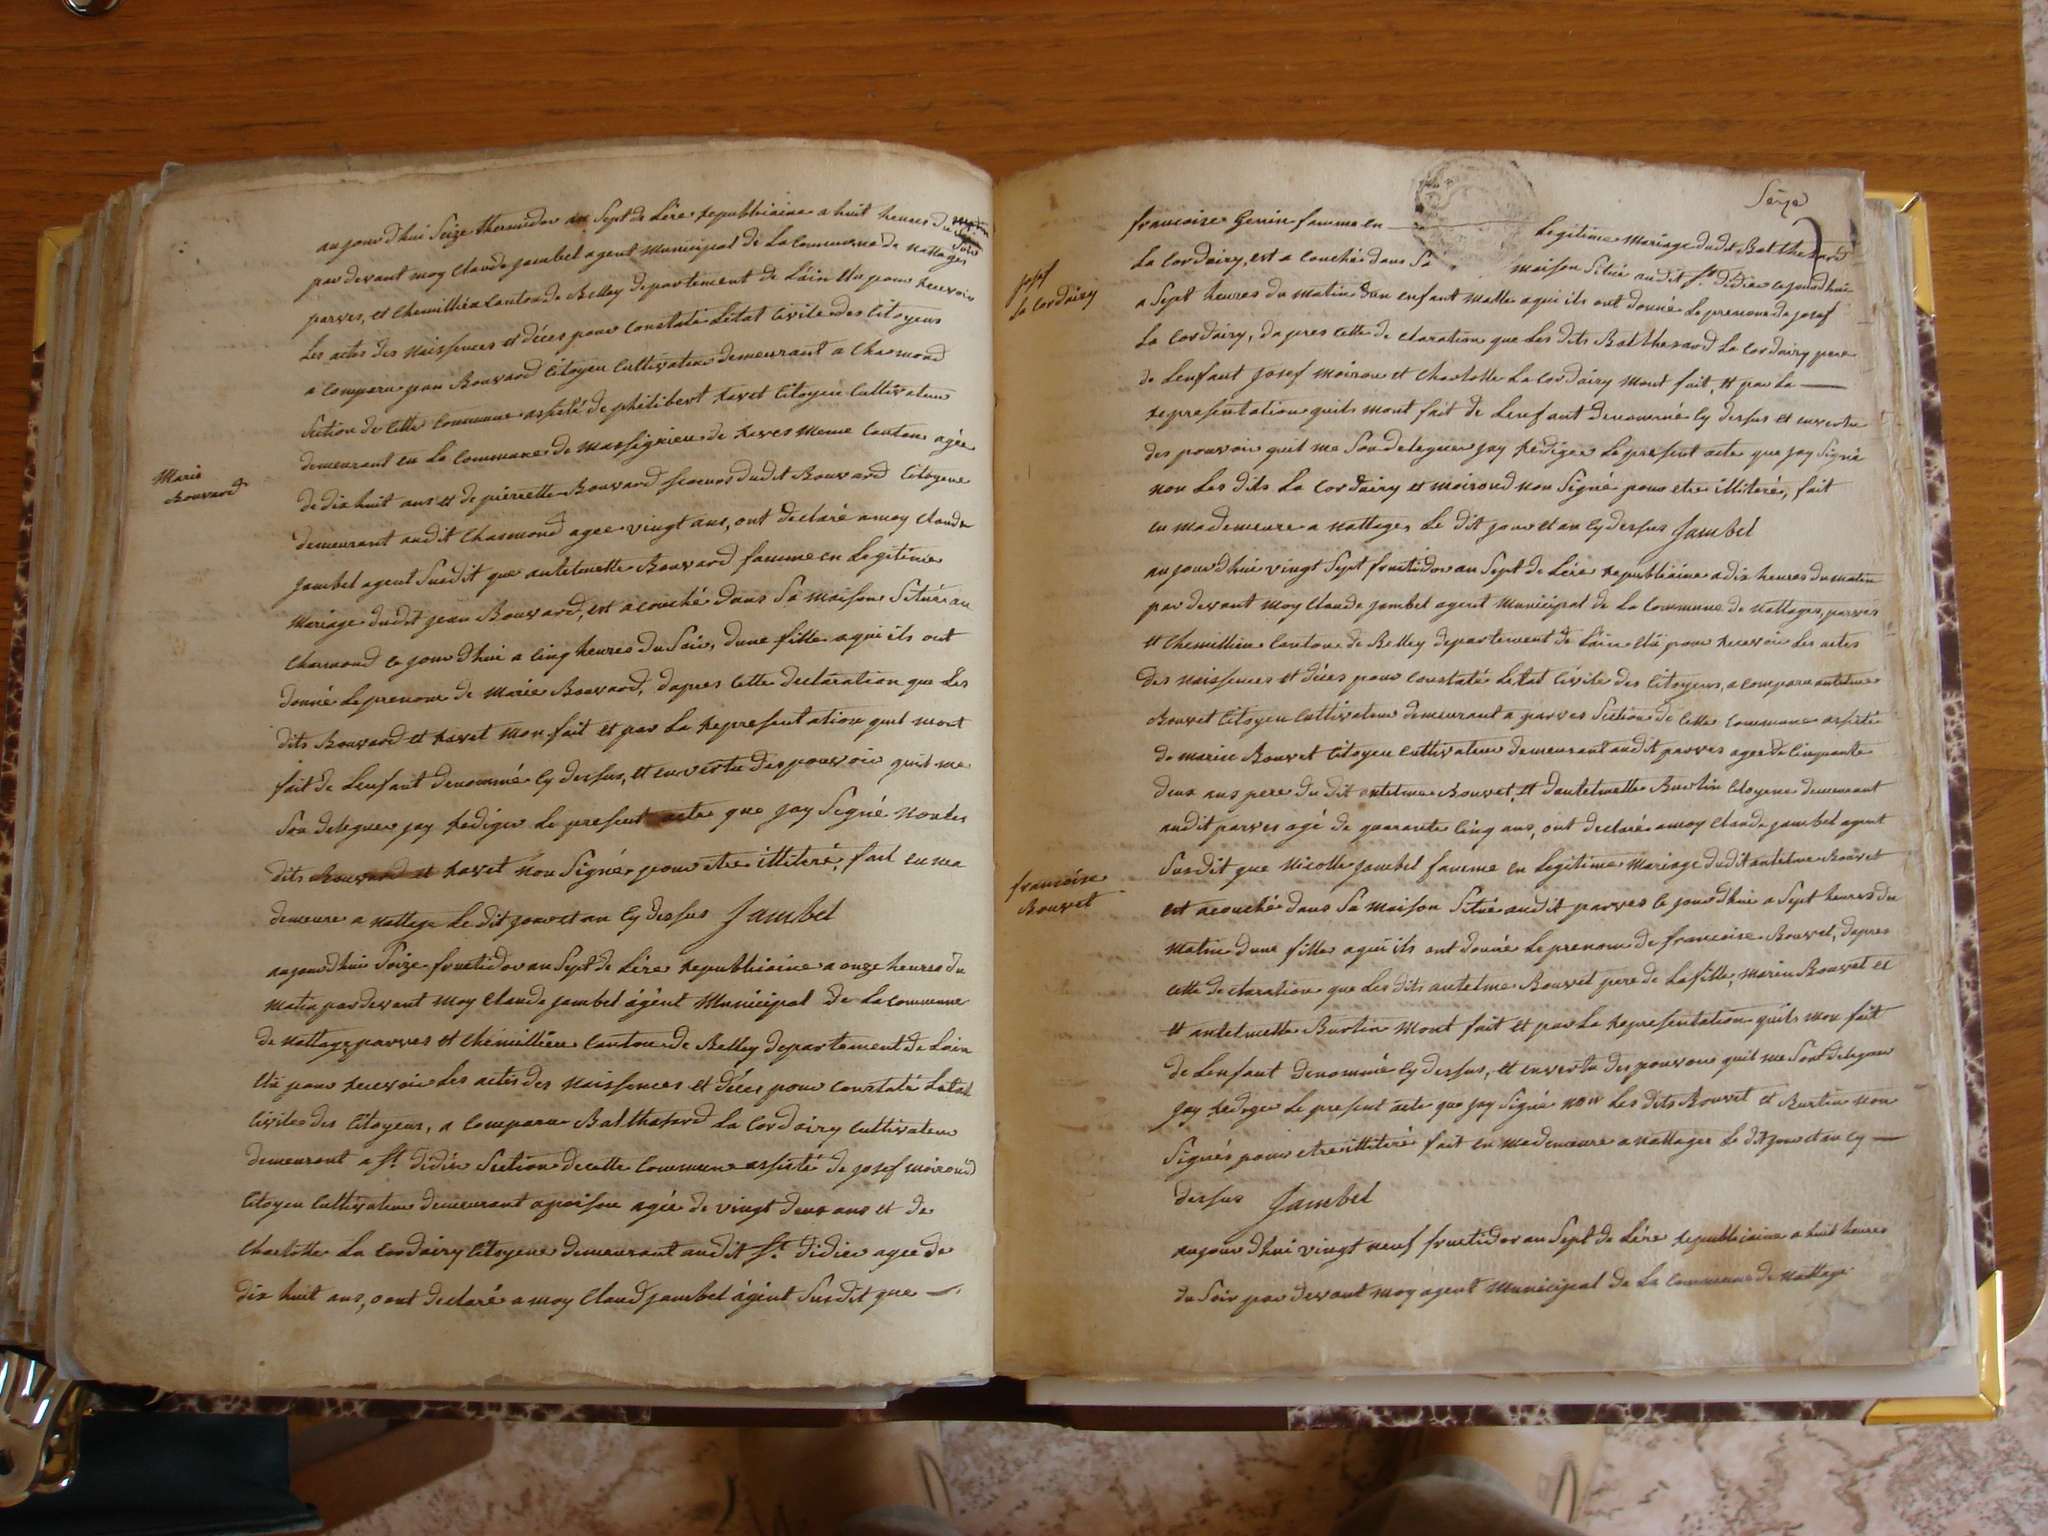 aujourdhui Seize thermidor an Sept de Lére Republiciaine a huit heures du
Soir
par devant moy Claude jambel agent Municipal de La Commune de nattages
parves, et Chemillieu Canton de Belley departement de Láin élu pour Recevoir
Les actes des Naissences et décés pour Constaté Létat Civile des Citoyens
a Comparu jean Bouvard Citoyen Cultivateur demeurant a Charmond
Section de Cette Commune assisté de philibert Ravet Citoyen Cultivateur
demeurant en La Commune de Massignieu de Rives meme Canton agée
Marie
Bouvard
de dix huit ans et de pierrette Bouvard soeur dudit Bouvard Citoyene
demeurant audit Charmond agee vingt ans, ont déclaré a moy Claude
jambel agent Susdit que antelmette Bouvard famme en Legitime
Mariage dudit jean Bouvard, est acouché dans Sa maison Situé au
Charmond ce jourdhui a Cinq heures du Soir, dune fille a qui ils ont
donné Le prenom de Marie Bouvard, dapres Cette declaration que Les
dits Bouvard et Ravet mon fait et par La Representation quil mont
fait de Lenfant denommé Cy dessus, et en vertu des pouvoir quil me
Son deleguer jay Rediger Le present acte que jay Signé non Les
dits Bouvard et Ravet non Signé pour etre illiteré, fait en ma
demeure a nattage Le dit jour et an Cy dessus Jambel
aujourdhui Seize fructidor an Sept de Lére Republiciaine a onze heures du
Matin par devant moy Claude jambel ágént Municipal de La Commune
de nattage parves et Chemillieu Canton de Belley departement de Lain
élu pour Recevoir Les actes des Naissences et décés pour Constaté Létat
Civile des Citoyens, a Comparu Balthazard La Cordairy Cultivateur
demeurant a St. didier Section de cette Commune assisté de josef moiroud
Citoyen Cultivateur demeurant a agée de vingt deux ans et de
Charlotte La Cordairy Citoyene demeurant audit St. didier agee de
dix huit ans, ont declaré a moy Claud jambel ágént Susdit que
Seize
francoise Genin famme en Legitime Mariage dudit Balthezard
josef
La Cordairy
La Cordairy, est a Couché dans Sa maison Situé audit St. didier ce jourdhui
a Sept heures du matin dun enfant malle a qui ils ont donné Le prenom de josef
La Cordairy, dapres Cette declaration que Les dits Balthezard La Cordairy pere
de Lenfant josef moiroud et Charlotte La Cordairy mont fait, et par La
representation quils mont fait de Lenfant denommé Cy dessus et en vertu
des pouvoir quil me Son deleguer jay Rediger Le present acte que jay Signé
non Les dits La Cordairy et moiroud non Signé pour etre illiteré, fait
en ma demeure a nattages Le dit jour et an Cy dessus Jambel
aujourdhui vingt Sept fructidor an Sept de Lére Republiciaine a dix heures du matin
par devant moy Claude jambel agent Municipal de La Commune de nattages, parves
et Chemillieu Canton de Belley departement de Láin élu pour Recevoir Les actes
des Naissences et décés pour Constaté Létat Civile des Citoyens, a Comparu antelme
Bouvet Citoyen Cultivateur demeurant a parves Section de Cette Commune assisté
de marin Bouvet Citoyen Cultivateur demeurant audit parves agee de Cinquante
deux ans pere du dit antelme Bouvet, et dantelmette Burtin Citoyene demeurant
audit parves agé de quarante Cinq ans, ont declaré a moy Claude jambel agent
francoise
Bouvet
Susdit que Nicolle jambel famme en Legitime Mariage dudit antelme Bouvet
est acouché dans Sa maison Situé audit parves Ce jourdhui a Sept heures du
Matin dune fille a qui ils ont donné Le prenom de francoise Bouvet, dapres
cette declaration que Les dits antelme Bouvet pere de La fille, marin Bouvet et
et antelmette Burtin mont fait et par La Representation quils mon fait
de Lenfant denommé Cy dessus, et en vertu des pouvoir quil me Sont deleguer
jay Rediger Le present acte que jay Signé non Les dits Bouvet et Burtin non
Signés pour etre illiteré fait en ma demeure a nattages Le dit jour et an Cy
dessus Jambel
aujourdhui vingt neuf fructidor an Sept de Lére Republiciaine a huit heures
du Soir par devant moy agent Municipal de La Commune de Nattage